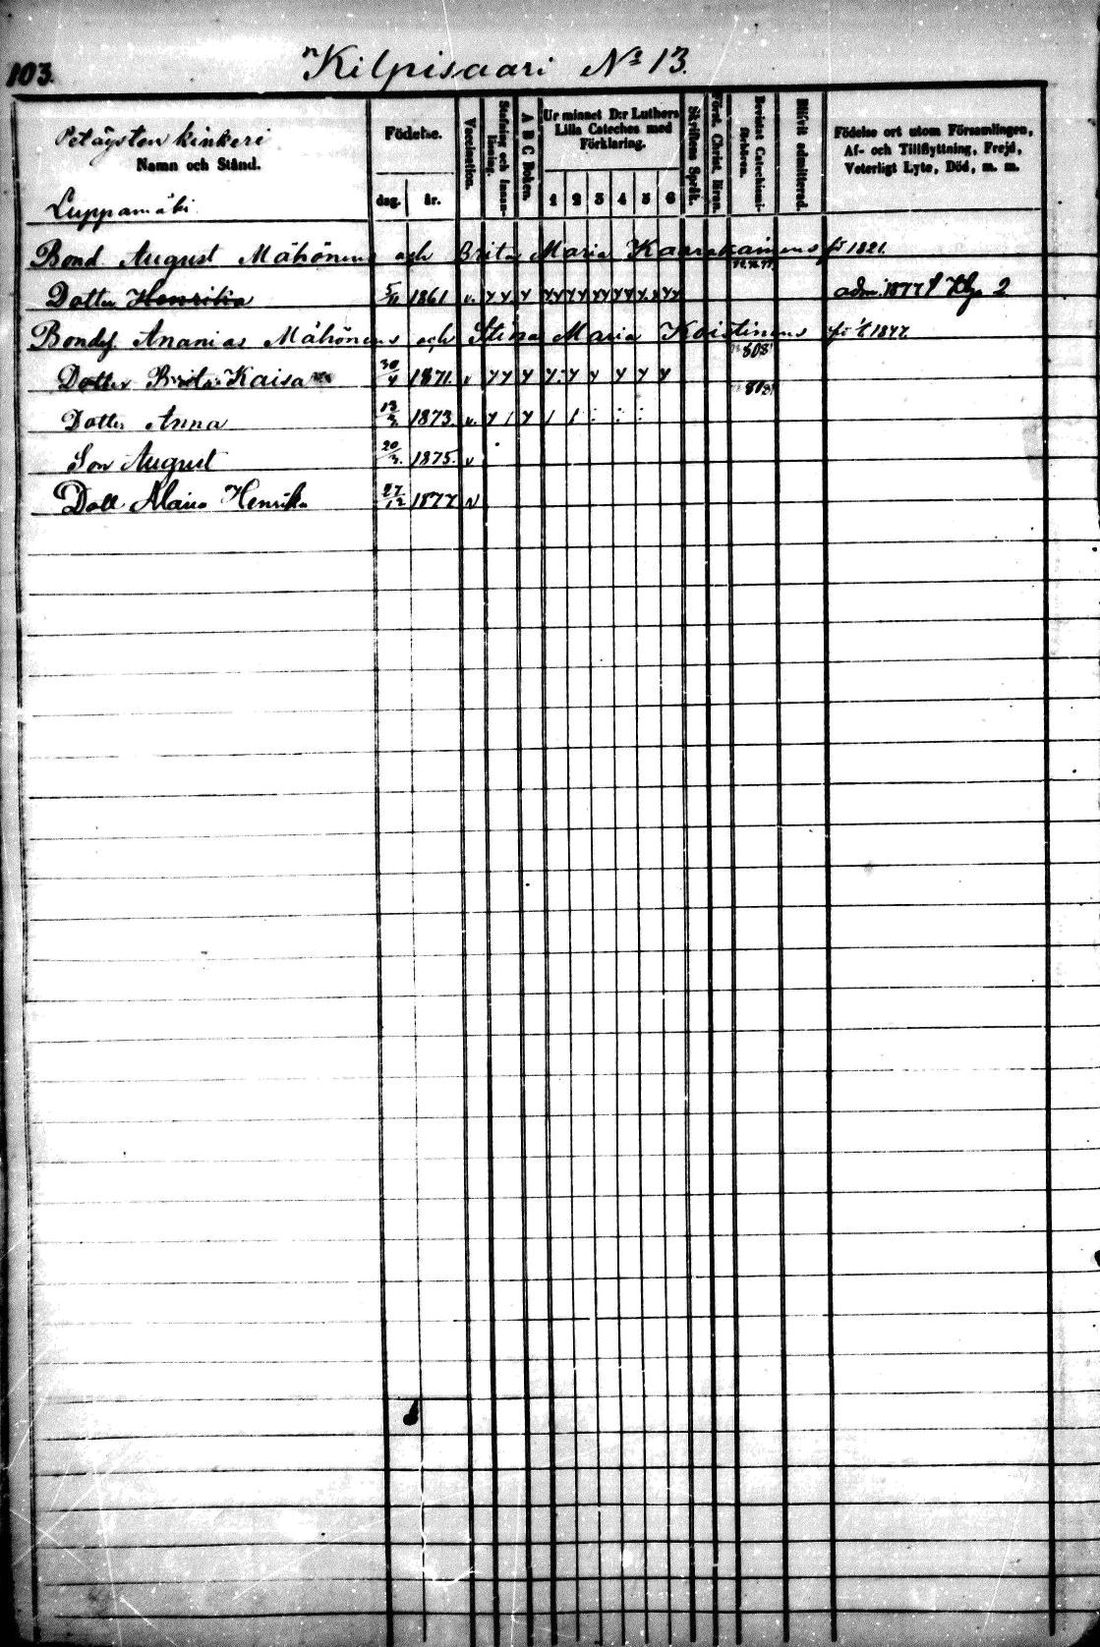 103.
Kilpisaari № 13.
Petäystenkinkeri
Namn och Stånd.
Luppamäki
Födelse.
dag. år.
Vaccination.
Stafning och Innan-läsning.
A B C Boken.
Ur minnet D:r Luthers Lilla Cateches med Förklaring.
1 2 3 4 5 6
Skriftens Språk.
Först. Christ. läran.
Bevistat Catechismi-förhören.
Blifvit admitterad.
Födelse ort utom Församlingen,
Af- och Tillflyttning, Frejd,
Veterligt Lyte, Död, m. m.
Bond. August Mähönens och Brita Maria fö 1821.
Dotter Henrika 5/11 1861 v. adm. 1877
Bondes. Ananias Mähönens och Stina Maria Koistinens 1847.
Dotter Brita Kaisa 30/4 1871. v
Dotter Anna 1873. v.
Son August 20/3. 1875. v
Dott Maria Henrika 27/12 1877 v